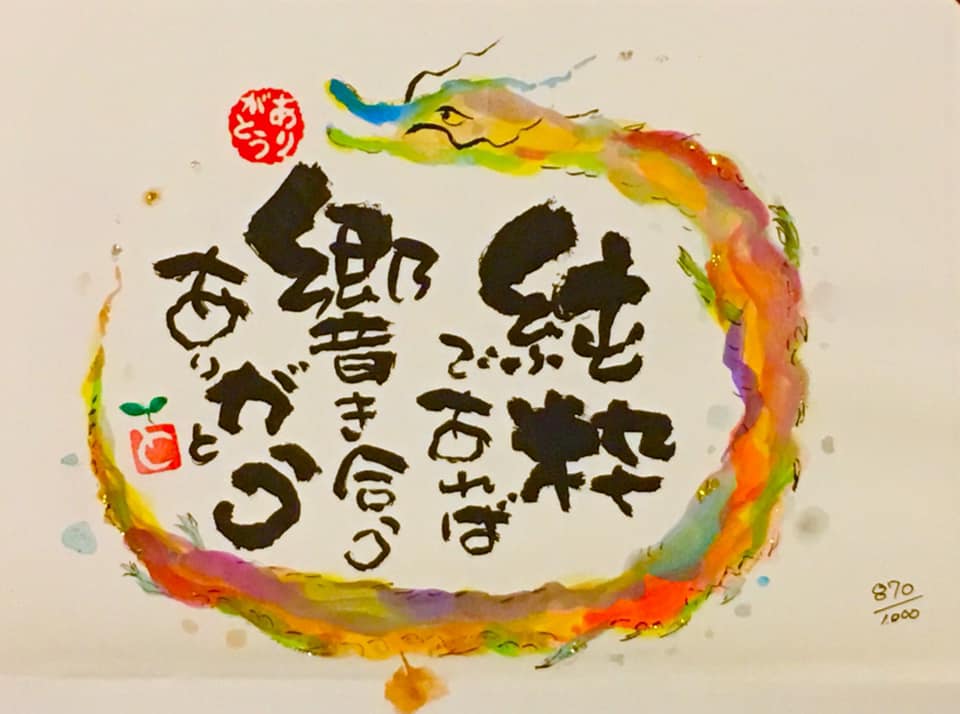 純粋
であれば
響き合う
ありがとう
ありがとう
と
870/1000